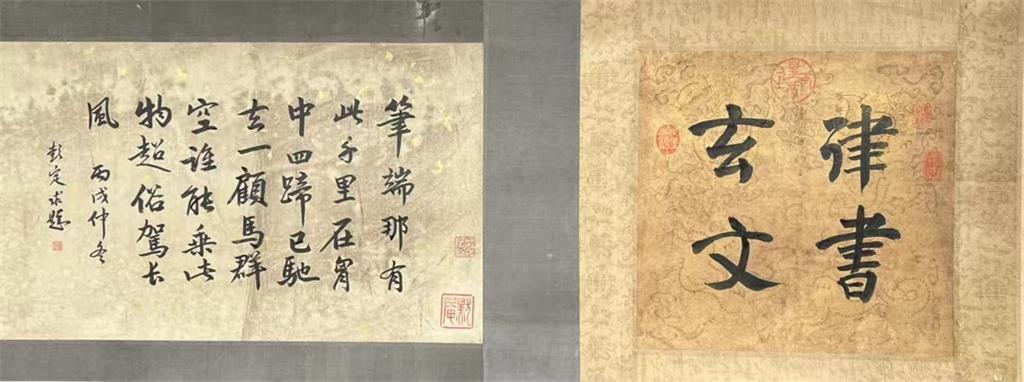 律書
玄文
筆端那有
此千里在胷
中四蹄已馳
去一顧馬群
空誰能乘此
物超俗駕長
風 丙戌仲冬
彭定求題